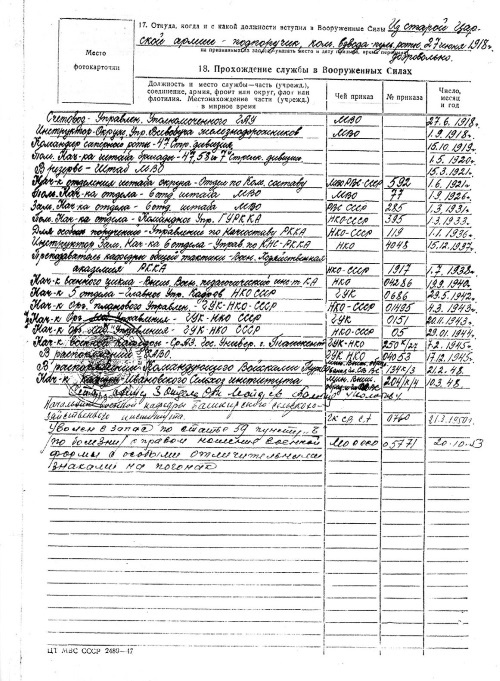 Место
фотокарточки
17. Откуда, когда и с какой должности вступил в Вооруженные Силы Из старой Цар-
ской армии - подпоручик, ком. взвода пулем. роты. 27 июня 1918 г.
добровольно.
18. Прохождение службы в Вооруженных Силах
Должность и место службы—часть (учрежд.), соединение, армия, фронт или округ, флот или флотилия. Местонахождение части (учрежд.) в мирное время
Чей приказ
№ приказа
Число, месяц и год
Счетовод - Управлен. Уполномоченного ГАУ МВО 27.6.1918г.
Инструктор-Окруж. Упр. Всевобуча железнодорожников МВО 1.9.1918г.
Командир саперной роты - 47 Стр. дивизия 15.10.1919г.
Пом. Нач-ка штаба бригады - 47, 58 и 7 Стрелк. дивизии. 1.5.1920г.
В резерве - Штаб МВО 15.3.1921г.
Нач-к отделения штаба округа - Отдел по Ком. составу РВС СССР 592 1.6.1921г.
Пом. Нач-ка отдела - 6 отд штаба МВО МВО 77 1.9.1926г.
Зам. Нач-ка отдела - 6 отд штаба МВО РВС СССР 285 1.3.1931г.
Пом. Нач-ка отдела - Командное Упр. ГУРККА НКО-СССР 395 1.3.1933г.
Для особых поручений - Управление по Начсоставу РККА НКО-СССР 119 1.1.1936г.
Инструктор Зам. Нач-ка 6 отдела - Управ по КНС-РККА НКО 4048 15.12.1937г.
Преподаватель кафедры общей тактики Воен. Хозяйственная
академия РККА НКО-СССР 1917 1.7.1938г.
Нач-к военного цикла - Высш. Воен. педагогический инст КА НКО 04286 1940г.
Нач-к 3 отдела - Главное Упр. Кадров НКО СССР ГУК 0686 29.5.1942г.
Нач-к Орг. планового Управлен. - ГУК-НКО-СССР НКО-СССР 01495 4.3.1943г.
Нач-к Орг. Управления - ГУК НКО СССР ГУК 0151 20.11.1943г.
Нач-к Орг. Управления - ГУК-НКО СССР НКО-СССР 05 29.01.1944г.
Нач-к. Военной кафедры - Ср. Аз. Гос. Универ. г. Ташкент ГУК-НКО 7.2.1945г.
В распоряжении ГУК НКО 04053 17.12.1945г.
В распоряжении Командующего Войсками 134 21.2.48.
Нач-к кафедры - Ивановского Сельхоз института 204/к/4 10.3.48.
Начальник военной кафедры Башкирского сельско-
хозяйственного института. 0760 21.3.1950г.
Уволен в запас по статье 59 пункт
по болезни с правом ношения военной 05771 20.10.53
формы с особыми отличительными
знаками на погонах
ЦТ МВС СССР 2480—47